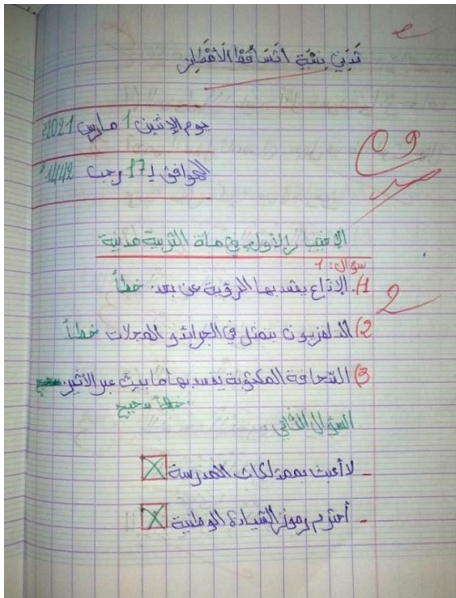 يوم الإثنين 1 مارس 2021م
الموافق لـ 17 رجب 1442هـ
09
الإختبار الأول في مادة التربية مدنية
سؤال: 1
2
1). الإذاع يقصد بها الرؤية عن بعد. خطأ
2) التلفزيون يتمثل في الجرائد و المجلات خطأ
3) الصحافة المكتوبة يقصد بها ما يبث عبر الأثير.
خطأ صحيح
السؤال الثاني
- لا أعبث بممتلكات المدرسة X
- أحترم رموز السيادة الوطنية X